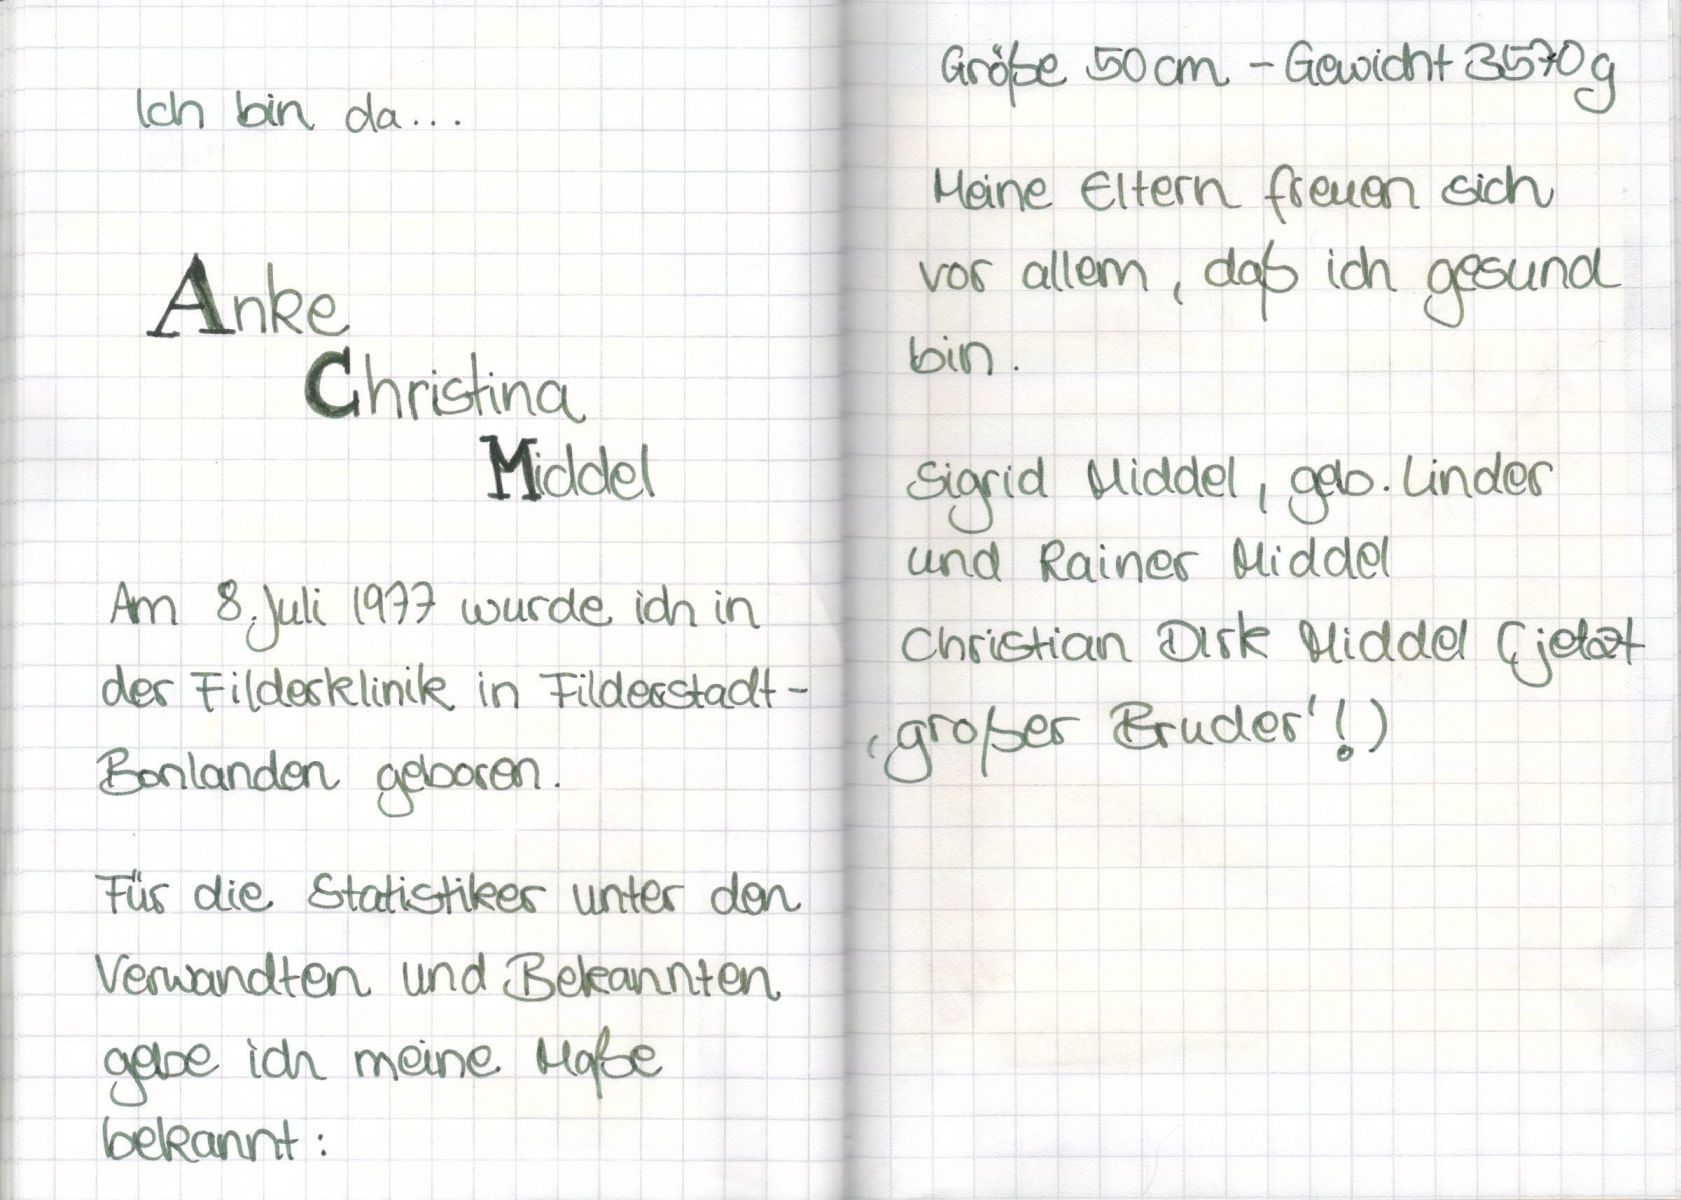 Ich bin da...
Anke
Christina
Middel
Am 8. Juli 1977 wurde ich in
der Filderklinik in Filderstadt-
Bonlanden geboren.
Für die Statistiker unter den
Verwandten und Bekannten
gebe ich meine Maße
bekannt:
Größe 50 cm - Gewicht 3570 g
Meine Eltern freuen sich
vor allem, daß ich gesund
bin.
Sigrid Middel, geb. Linder
und Rainer Middel
Christian Dirk Middel (jetzt
‚großer Bruder'!)